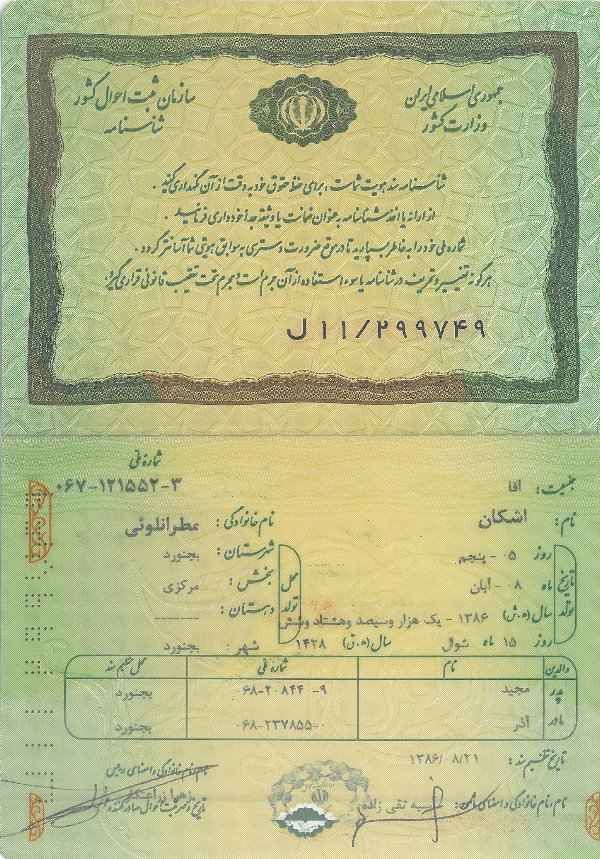 جمهوری اسلامی ایران
وزارت کشور
سازمان ثبت احوال کشور
شناسنامه
شناسنامه سند هویت شماست، برای حفظ حقوق خود به دقت از آن نگهداری کنید.
از ارائه یا اخذ شناسنامه به عنوان ضمانت یا وثیقه جداً خودداری فرمائید.
شماره ملی خود را به خاطر بسپارید تا در موقع ضرورت دسترسی به سوابق هویتی شما آسانتر گردد.
هرگونه تغییر و تحریف در شناسنامه یا سوء استفاده از آن جرم است و مجرم تحت تعقیب قانونی قرار می‌گیرد.
ل ۱۱/۲۹۹۷۴۹
شماره ملی
۰۶۷-۱۲۱۵۵۲-۳
جنسیت: آقا
نام: اشکان
نام خانوادگی: عطرانلوئی
تاریخ تولد
روز ۰۵ - پنجم
ماه ۰۸ - آبان
سال (ه.ش) ۱۳۸۶ - یک هزار وسیصد وهشتاد وشش
روز ۱۵ ماه شوال سال (ه.ق) ۱۴۲۸
محل تولد
شهرستان: بجنورد
بخش: مرکزی
دهستان: -------
شهر: بجنورد
والدین نام شماره ملی محل تنظیم سند
پدر مجید ۰۶۸-۲۰۸۴۴ -۹ بجنورد
مادر آذر ۰۶۸-۲۳۷۸۵۵-۰ بجنورد
تاریخ تنظیم سند: ۱۳۸۶/۰۸/۲۱
نام، نام خانوادگی و امضای مامور: تقی زاده
نام، نام خانوادگی و امضای رییس